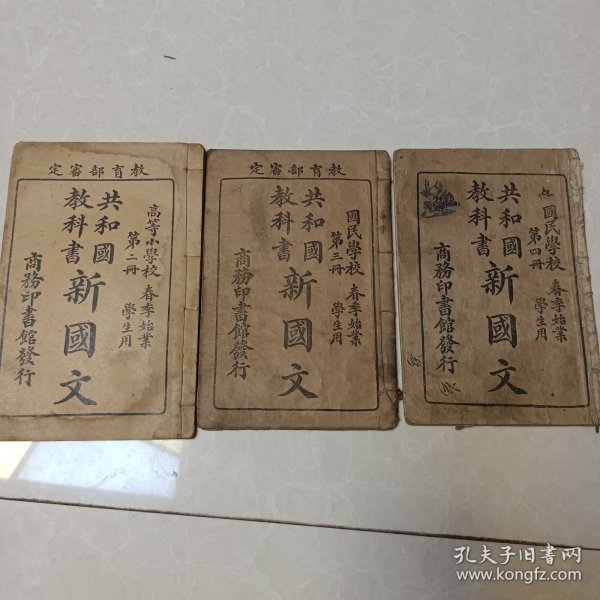 教育部審定
高等小學校 春季始業
第二冊 學生用
共和國
教科書
新國文
商務印書館發行
教育部審定
國民學校 春季始業
第三冊 學生用
共和國
教科書
新國文
商務印書館發行
國民學校 春季始業
第四冊 學生用
共和國
教科書
新國文
商務印書館發行
孔夫子旧书网
www.kongfz.com